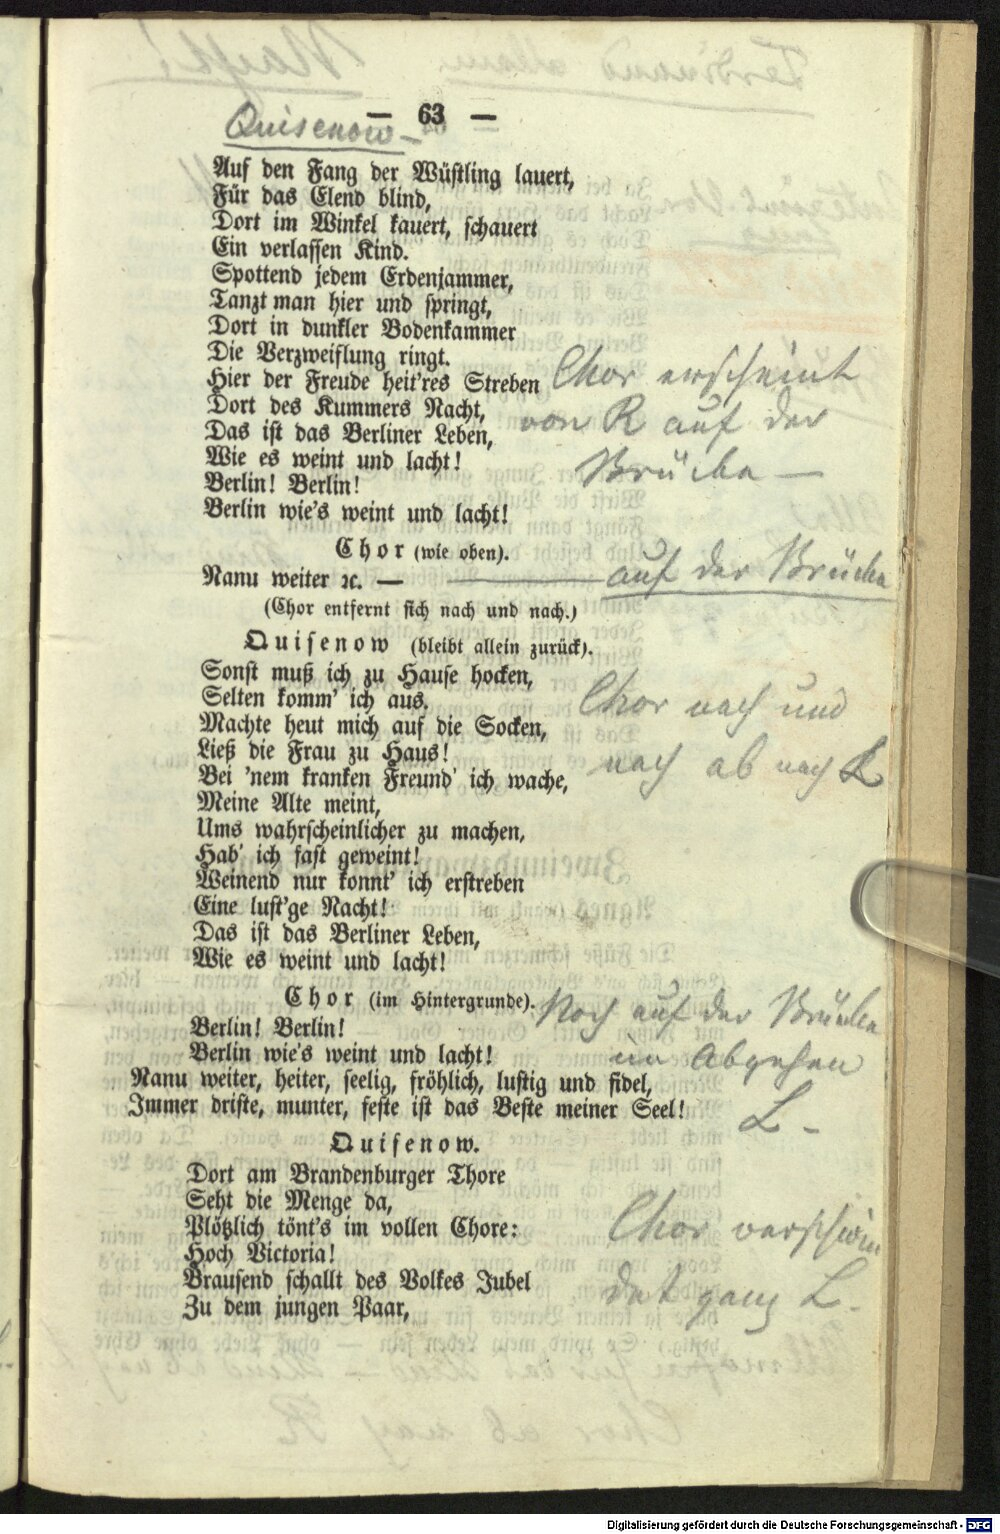 — 63 —
Quisenow —
Auf den Fang der Wüstling lauert,
Für das Elend blind,
Dort im Winkel kauert, schauert
Ein verlassen Kind.
Spottend jedem Erdenjammer,
Tanzt man hier und springt,
Dort in dunkler Bodenkammer
Die Verzweiflung ringt.
Hier der Freude heit'res Streben
Chor erscheint
Dort des Kummers Nacht,
von R auf der
Das ist das Berliner Leben,
Wie es weint und lacht!
Brücke —
Berlin! Berlin!
Berlin wie's weint und lacht!
Chor (wie oben).
Nanu weiter ꝛc. —
auf der Brücke
(Chor entfernt sich nach und nach.)
Quisenow (bleibt allein zurück).
Sonst muß ich zu Hause hocken,
Selten komm' ich aus.
Chor nach und
Machte heut mich auf die Socken,
Ließ die Frau zu Haus!
nach ab nach L
Bei 'nem kranken Freund' ich wache,
Meine Alte meint,
Ums wahrscheinlicher zu machen,
Hab' ich fast geweint!
Weinend nur konnt' ich erstreben
Eine lust'ge Nacht!
Das ist das Berliner Leben,
Wie es weint und lacht!
Chor (im Hintergrunde).
Noch auf der Brücke
Berlin! Berlin!
Berlin wie's weint und lacht!
im Abgehen
Nanu weiter, heiter, seelig, fröhlich, lustig und fidel,
Immer driste, munter, feste ist das Beste meiner Seel!
L —
Quisenow.
Dort am Brandenburger Thore
Seht die Menge da,
Plötzlich tönt's im vollen Chore:
Chor verschwin
Hoch Victoria!
Brausend schallt des Volkes Jubel
det ganz L.
Zu dem jungen Paar,
Digitalisierung gefördert durch die Deutsche Forschungsgemeinschaft - DFG